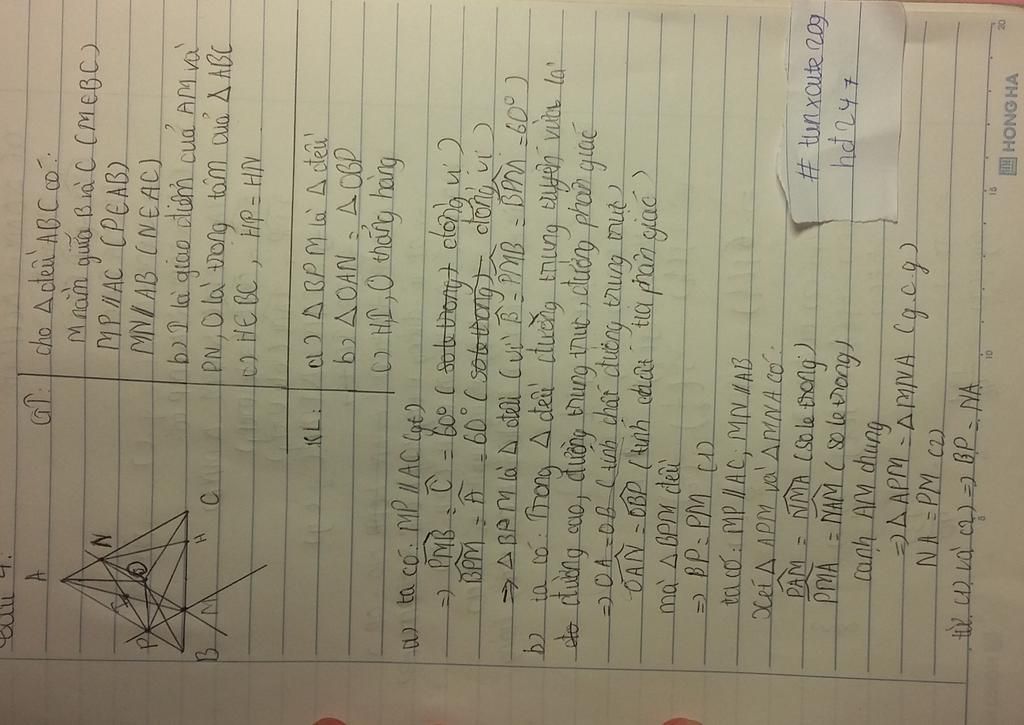 Câu 4:
GT: cho Δ đều ABC có:
M nằm giữa B và C (M∈BC)
MP//AC (P∈AB)
MN//AB (N∈AC)
b) I là giao điểm của AM và
PN, O là trong tâm của Δ ABC
c) H∈BC, HP=HN
A
P
I
O
N
B
M
H
C
KL: a) Δ BPM là Δ đều
b) Δ OAN = Δ OBP
c) H,I,O thẳng hàng
a) ta có: MP // AC (gt)
=> PMB = C = 60° (so le trong) đồng vị)
BPM = A = 60° (so le trong) đồng vị)
=> Δ BPM là Δ đều (vì B = PMB = BPM = 60°)
b) ta có: Trong Δ đều đường trung tuyến vừa là
đường cao, đường trung trực, đường phân giác
=> OA = OB (tính chất đường trung trực)
OAN = OBP (tính chất tia phân giác)
mà Δ BPM đều
=> BP = PM (1)
ta có: MP // AC, MN // AB
Xét Δ APM và Δ MNA có:
PAM = NMA (so le trong)
PMA = NAM (so le trong)
cạnh AM chung
=> Δ APM = Δ MNA (g.c.g)
NA = PM (2)
từ (1) và (2) => BP = NA
# tunxcute209
hd247
HONG HA
5
10
15
20